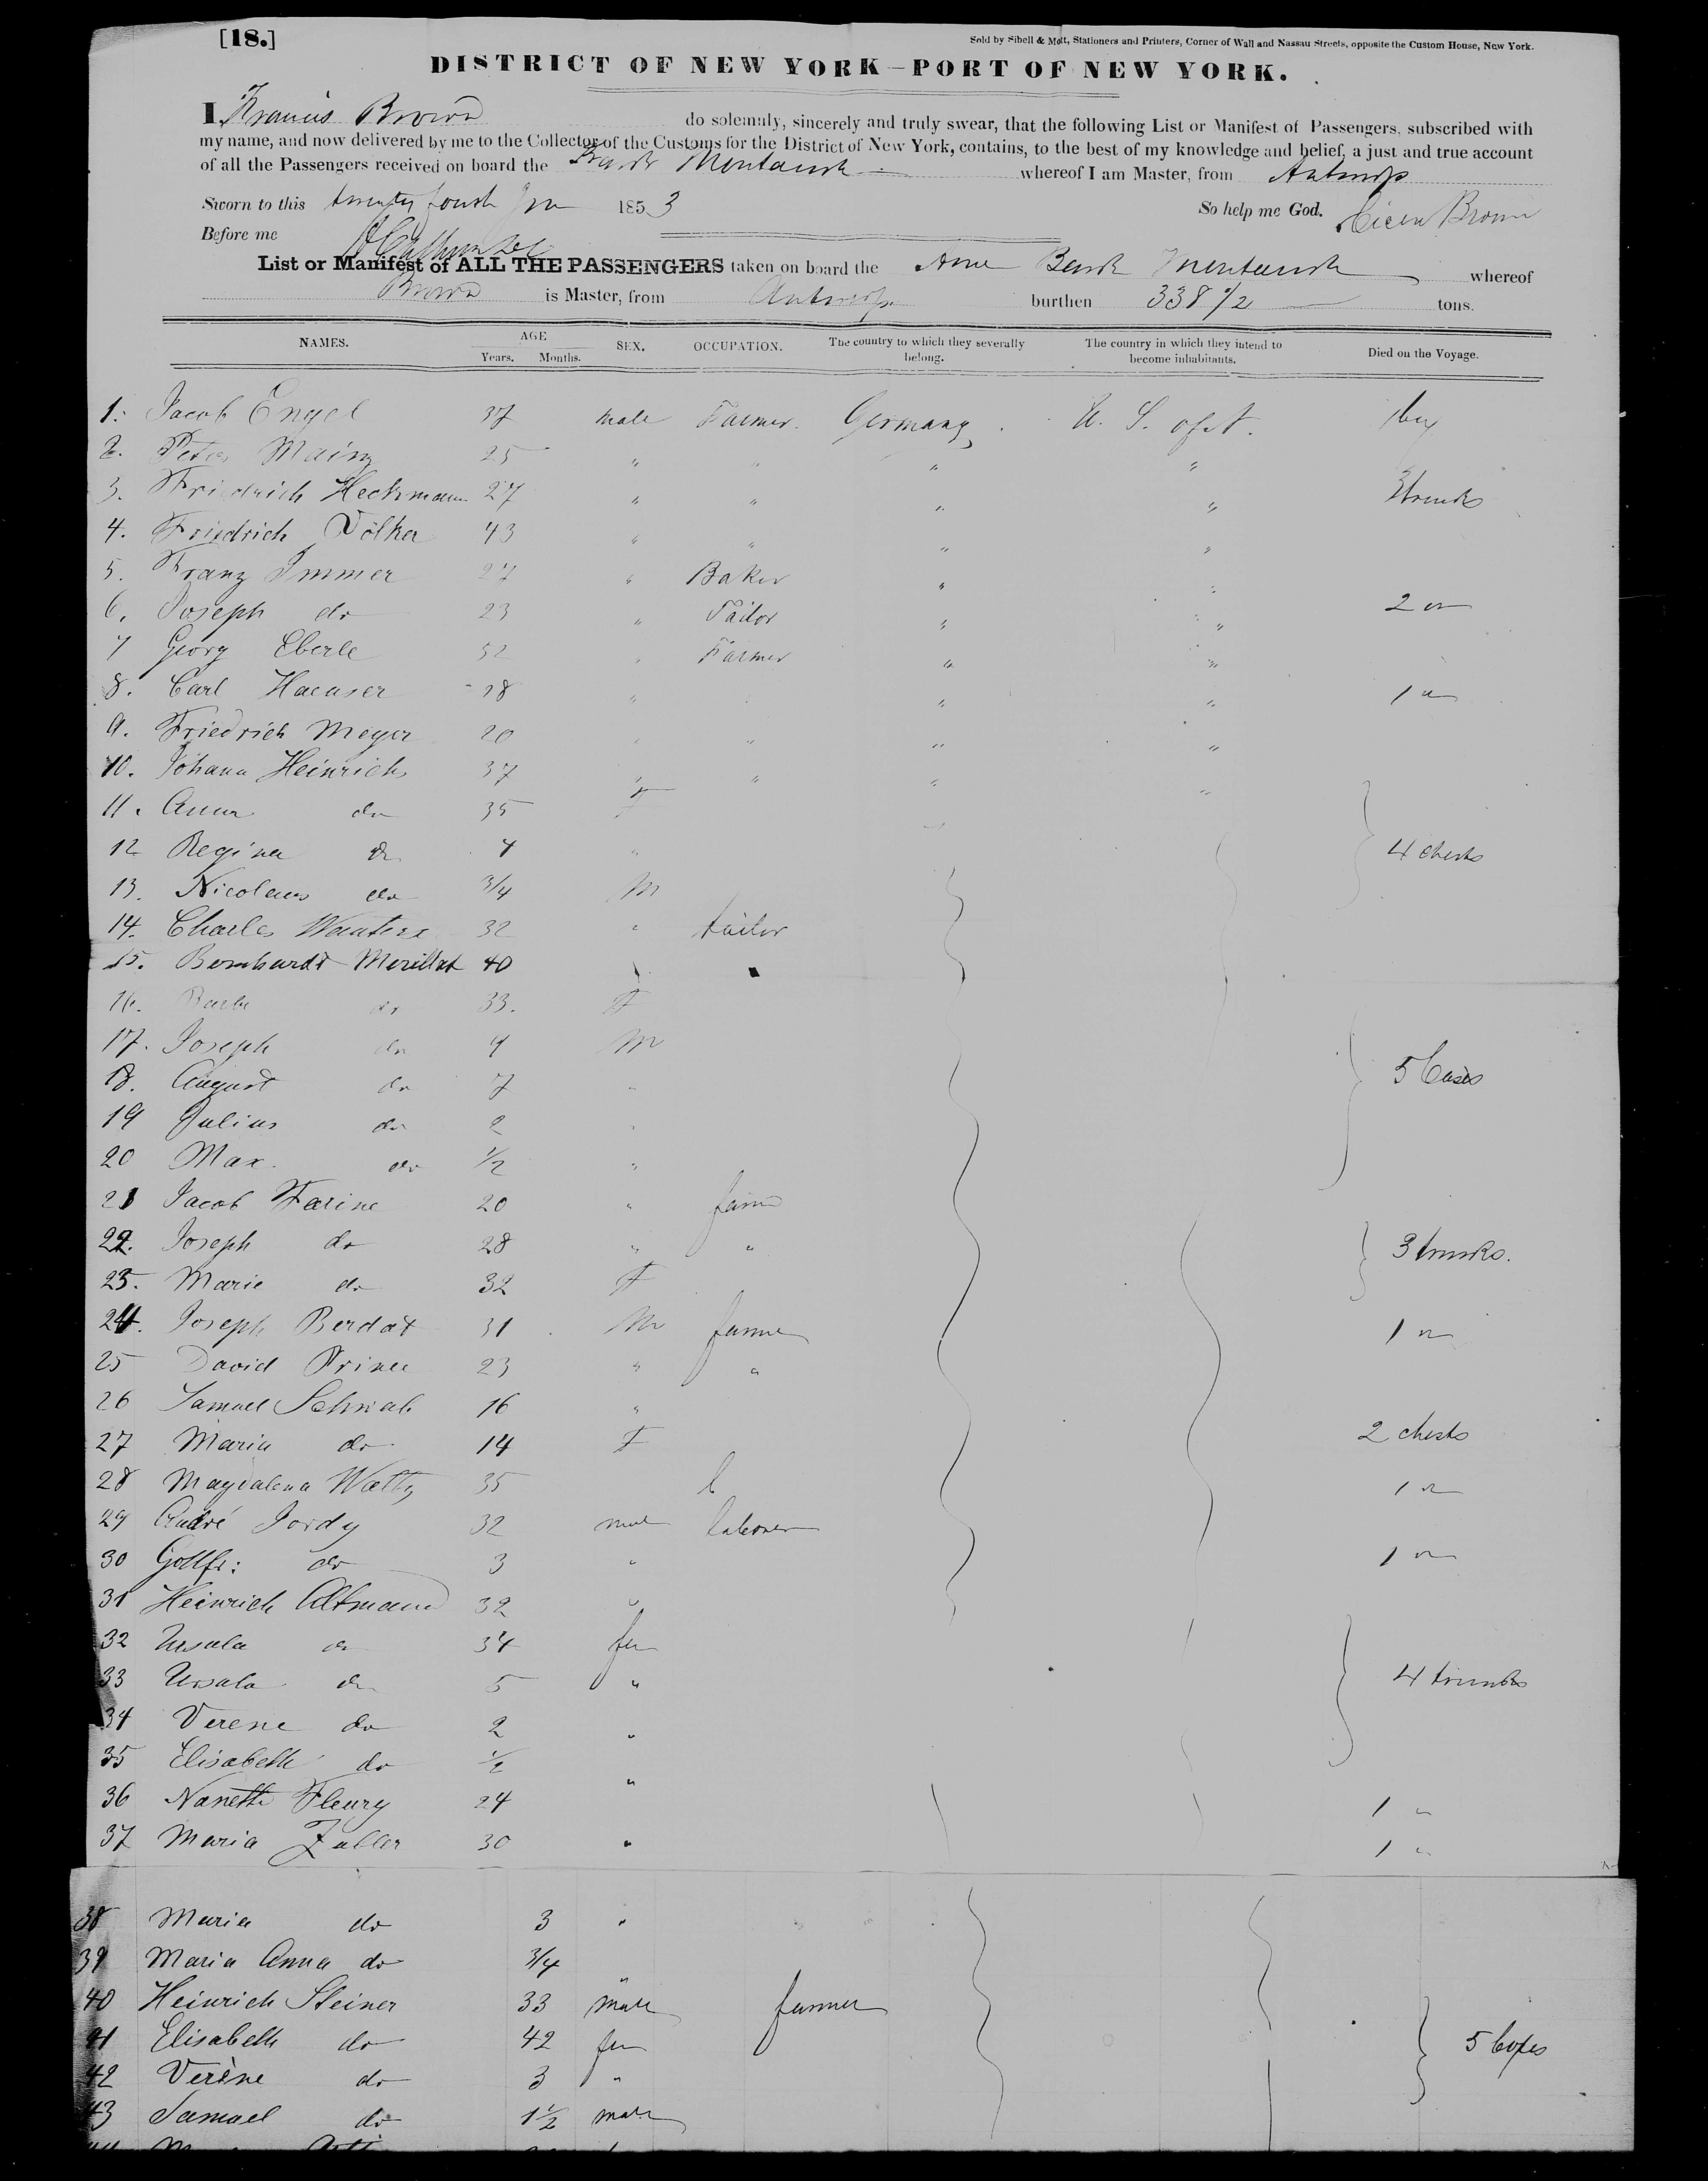 [18.]
Sold by Sibell & Mott, Stationers and Printers, Corner of Wall and Nassau Streets, opposite the Custom House, New York.
DISTRICT OF NEW YORK—PORT OF NEW YORK.
I Francis Brown do solemnly, sincerely and truly swear, that the following List or Manifest of Passengers, subscribed with
my name, and now delivered by me to the Collector of the Customs for the District of New York, contains, to the best of my knowledge and belief, a just and true account
of all the Passengers received on board the Bark Montauk whereof I am Master, from Antwerp
Sworn to this twenty fourth 1853 So help me God. Brown
Before me
List or Manifest of ALL THE PASSENGERS taken on board the Bark Montauk whereof
Brown is Master, from Antwerp burthen 338 1/2 tons.
NAMES. AGE Years. Months. SEX. OCCUPATION. The country to which they severally belong. The country in which they intend to become inhabitants. Died on the Voyage.
1. Jacob Engel 37 male Farmer. Germany. U. S. of A.
2. Peter Mainz 25 " " " "
3. Friedrich Heckmann 27 " " " " 3 trunks
4. Friedrich Völker 43 " " " "
5. Franz Immer 27 " Baker " "
6. Joseph do 23 " Tailor " " 2
7 Georg Eberle 52 " Farmer " "
8. Carl Haeuser 28 " " " 1
9. Friedrich Meyer 20 " " " "
10. Johann Heinrich 37 " " " "
11. Anna do 35 F
12 Regina do 4 " 4 chests
13. Nicolaus do 3/4 M
14. Charles Wauters 32 " tailor
15. Bernhardt Merillat 40
16. Barbe do 33. F
17. Joseph do 9 M
18. August do 7 " 5 Cases
19 Julius do 2 "
20 Max. do 1/2 "
21 Jacob Farine 20 " farm
22. Joseph do 28 " " 3 trunks.
23. Marie do 32 F
24. Joseph Berdat 31 M farmer 1 "
25 David Prince 23 " "
26 Samuel Schwab 16 "
27 Maria do 14 F 2 chests
28 Magdalena Watty 35 1 "
29 André Jordy 32 mal laborer
30 Gottfr: do 3 " 1 "
31 Heinrich Altmann 32 "
32 Ursula do 34 fem
33 Ursula do 5 " 4 trunks
34 Verene do 2 "
35 Elisabeth do 1/2 "
36 Nanette Fleury 24 1 "
37 Maria Zuller 30 " 1 "
38 Maria do 3 "
39 Maria Anna do 3/4 "
40 Heinrich Steiner 33 male farmer
41 Elisabeth do 42 fem 5 boxes
42 Verène do 3 "
43 Samuel do 1 1/2 male